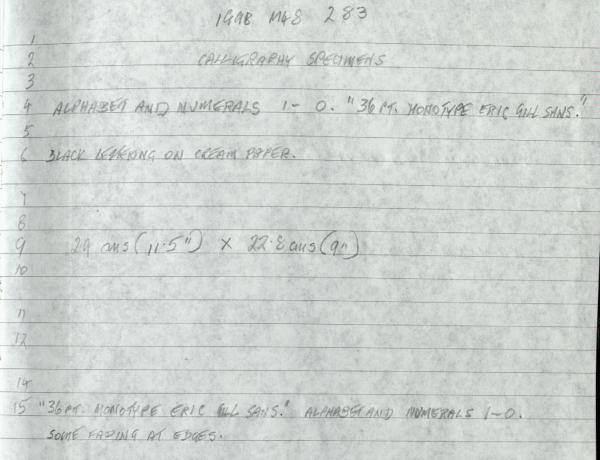 199B M48 283
1
2 CALLIGRAPHY SPECIMENS
3
4 ALPHABET AND NUMERALS 1-0. "36 PT. MONOTYPE ERIC GILL SANS."
5
6 BLACK LETTERING ON CREAM PAPER.
7
8
9 29 cms (11.5") X 22.8 cms (9")
10
11
12
14
15 "36 PT. MONOTYPE ERIC GILL SANS." ALPHABET AND NUMERALS 1-0.
SOME FADING AT EDGES.